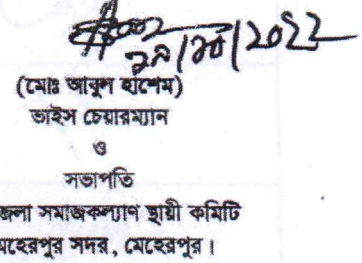 ২৯/১০/2022
(মোঃ আবুল হাশেম)
ভাইস চেয়ারম্যান
ও
সভাপতি
জেলা সমাজকল্যাণ স্থায়ী কমিটি
মেহেরপুর সদর, মেহেরপুর।